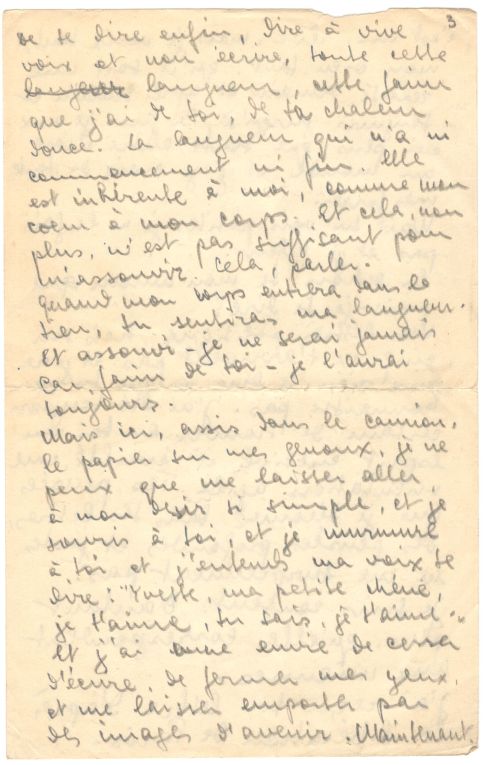 3
de te dire enfin, dire à vive
voix et non écrire, toute cette
langueur, cette faim
que j'ai de toi, de ta chaleur
douce. La langueur qui n'a ni
commencement ni fin. Elle
est inhérente à moi, comme mon
coeur à mon corps. Et cela, non
plus, n'est pas suffisant pour
m'assouvir. Cela, parler.
Quand mon corps entrera dans le
tien, tu sentiras ma langueur.
Et assouvi - je ne serai jamais
car faim de toi - je l'aurai
toujours.
Mais ici, assis dans le camion,
le papier sur mes genoux, je ne
peux que me laisser aller
à mon désir si simple, et je
souris à toi, et je murmure
à toi et j'entends ma voix te
dire : "Yvette, ma petite chérie,
je t'aime, tu sais, je t'aime."
Et j'ai une envie de cesser
d'écrire, de fermer mes yeux,
et me laisser emporter par
des images d'avenir. Maintenant